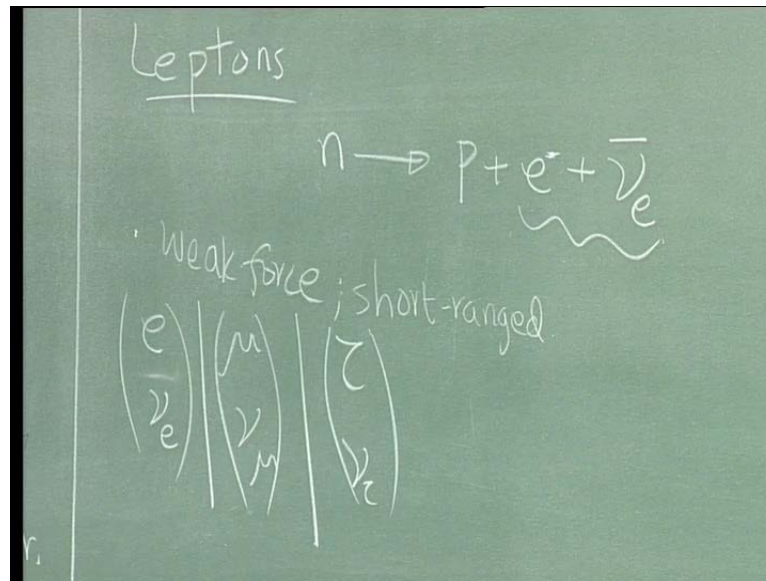 Leptons
n → p + e⁻ + ν̄ₑ
· weak force ; short-ranged
(e νₑ) | (μ ν_μ) | (τ ν_τ)
r.